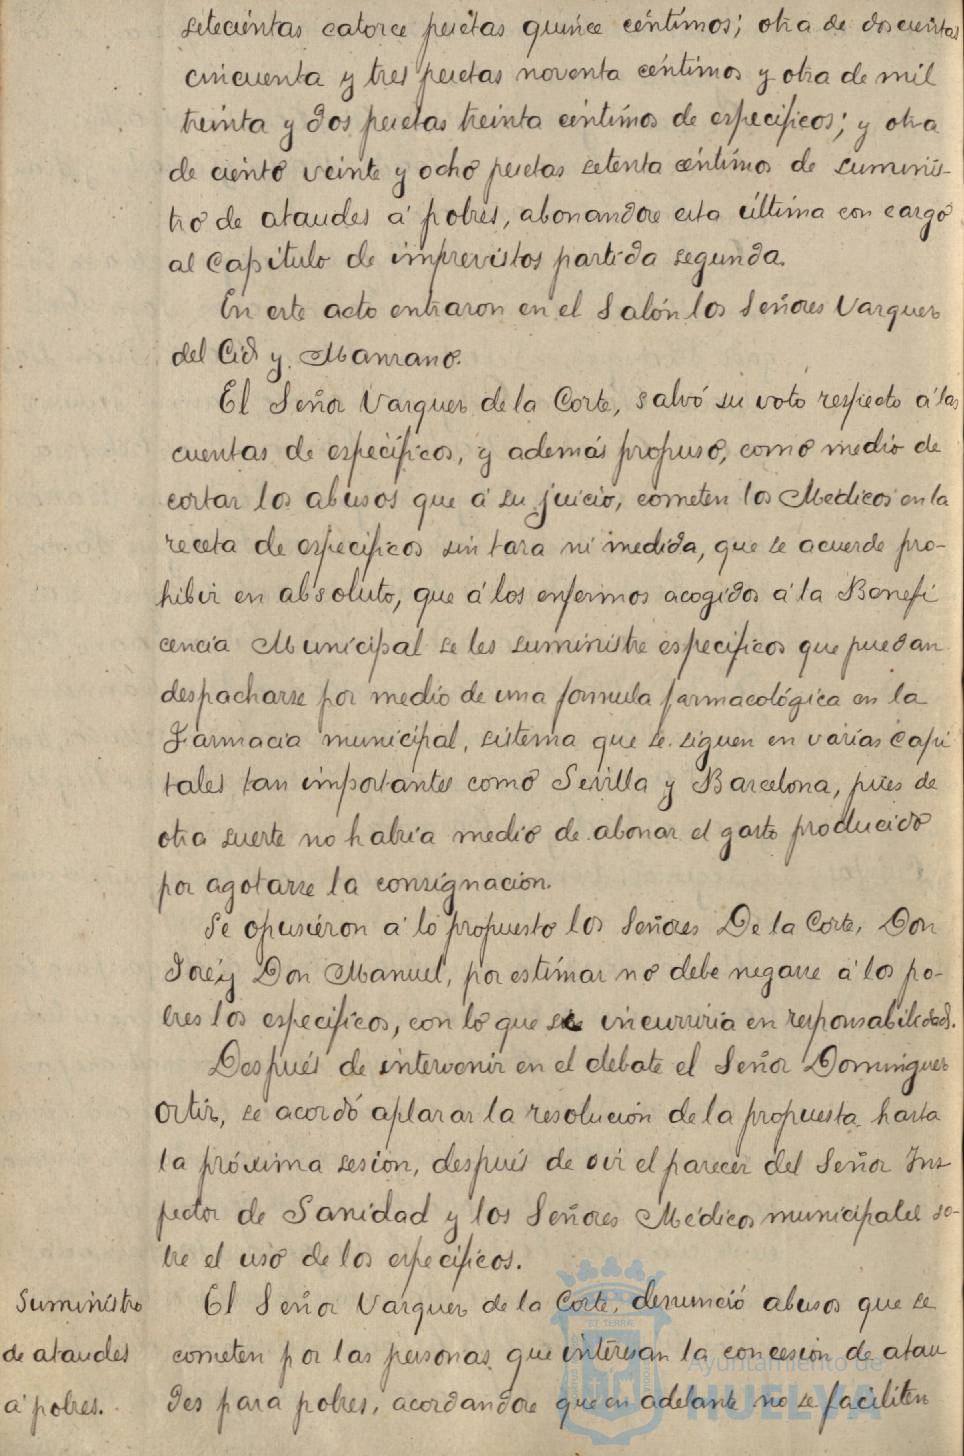 setecientas catorce pesetas quince céntimos; otra de doscientas
cincuenta y tres pesetas noventa céntimos y otra de mil
treinta y dos pesetas treinta céntimos de específicos; y otra
de ciento veinte y ocho pesetas setenta céntimos de suminis-
tro de ataudes á pobres, abonandose esta última con cargo
al Capitulo de imprevistos partida segunda.
En este acto entraron en el Salón los Señores Vazquez
del Cid y Manzano.
El Señor Vazquez de la Corte, salvó su voto respecto á las
cuentas de específicos, y además propuso, como medio de
cortar los abusos que á su juicio, cometen los Médicos en la
receta de específicos sin tasa ni medida, que se acuerde pro-
hibir en absoluto, que á los enfermos acogidos á la Benefi
cencia Municipal se les suministre específicos que puedan
despacharse por medio de una formula farmacológica en la
Farmacia municipal, sistema que se siguen en varias Capi
tales tan importantes como Sevilla y Barcelona, pues de
otra suerte no habría medio de abonar el gasto producido
por agotarse la consignación.
Se opusieron á lo propuesto los Señores De la Corte, Don
José y Don Manuel, por estimar no debe negarse á los po-
bres los específicos, con lo que se incurriria en responsabilidad.
Después de intervenir en el debate el Señor Dominguez
Ortiz, se acordó aplazar la resolución de la propuesta hasta
la próxima sesión, después de oir el parecer del Señor Ins
pector de Sanidad y los Señores Médicos municipales so-
bre el uso de los específicos.
Suministro
de ataudes
á pobres.
El Señor Vazquez de la Corte, denunció abusos que se
cometen por las personas que interesan la concesión de atau
des para pobres, acordandose que en adelante no se faciliten
ET TERRÆ
Ayuntamiento de
HUELVA